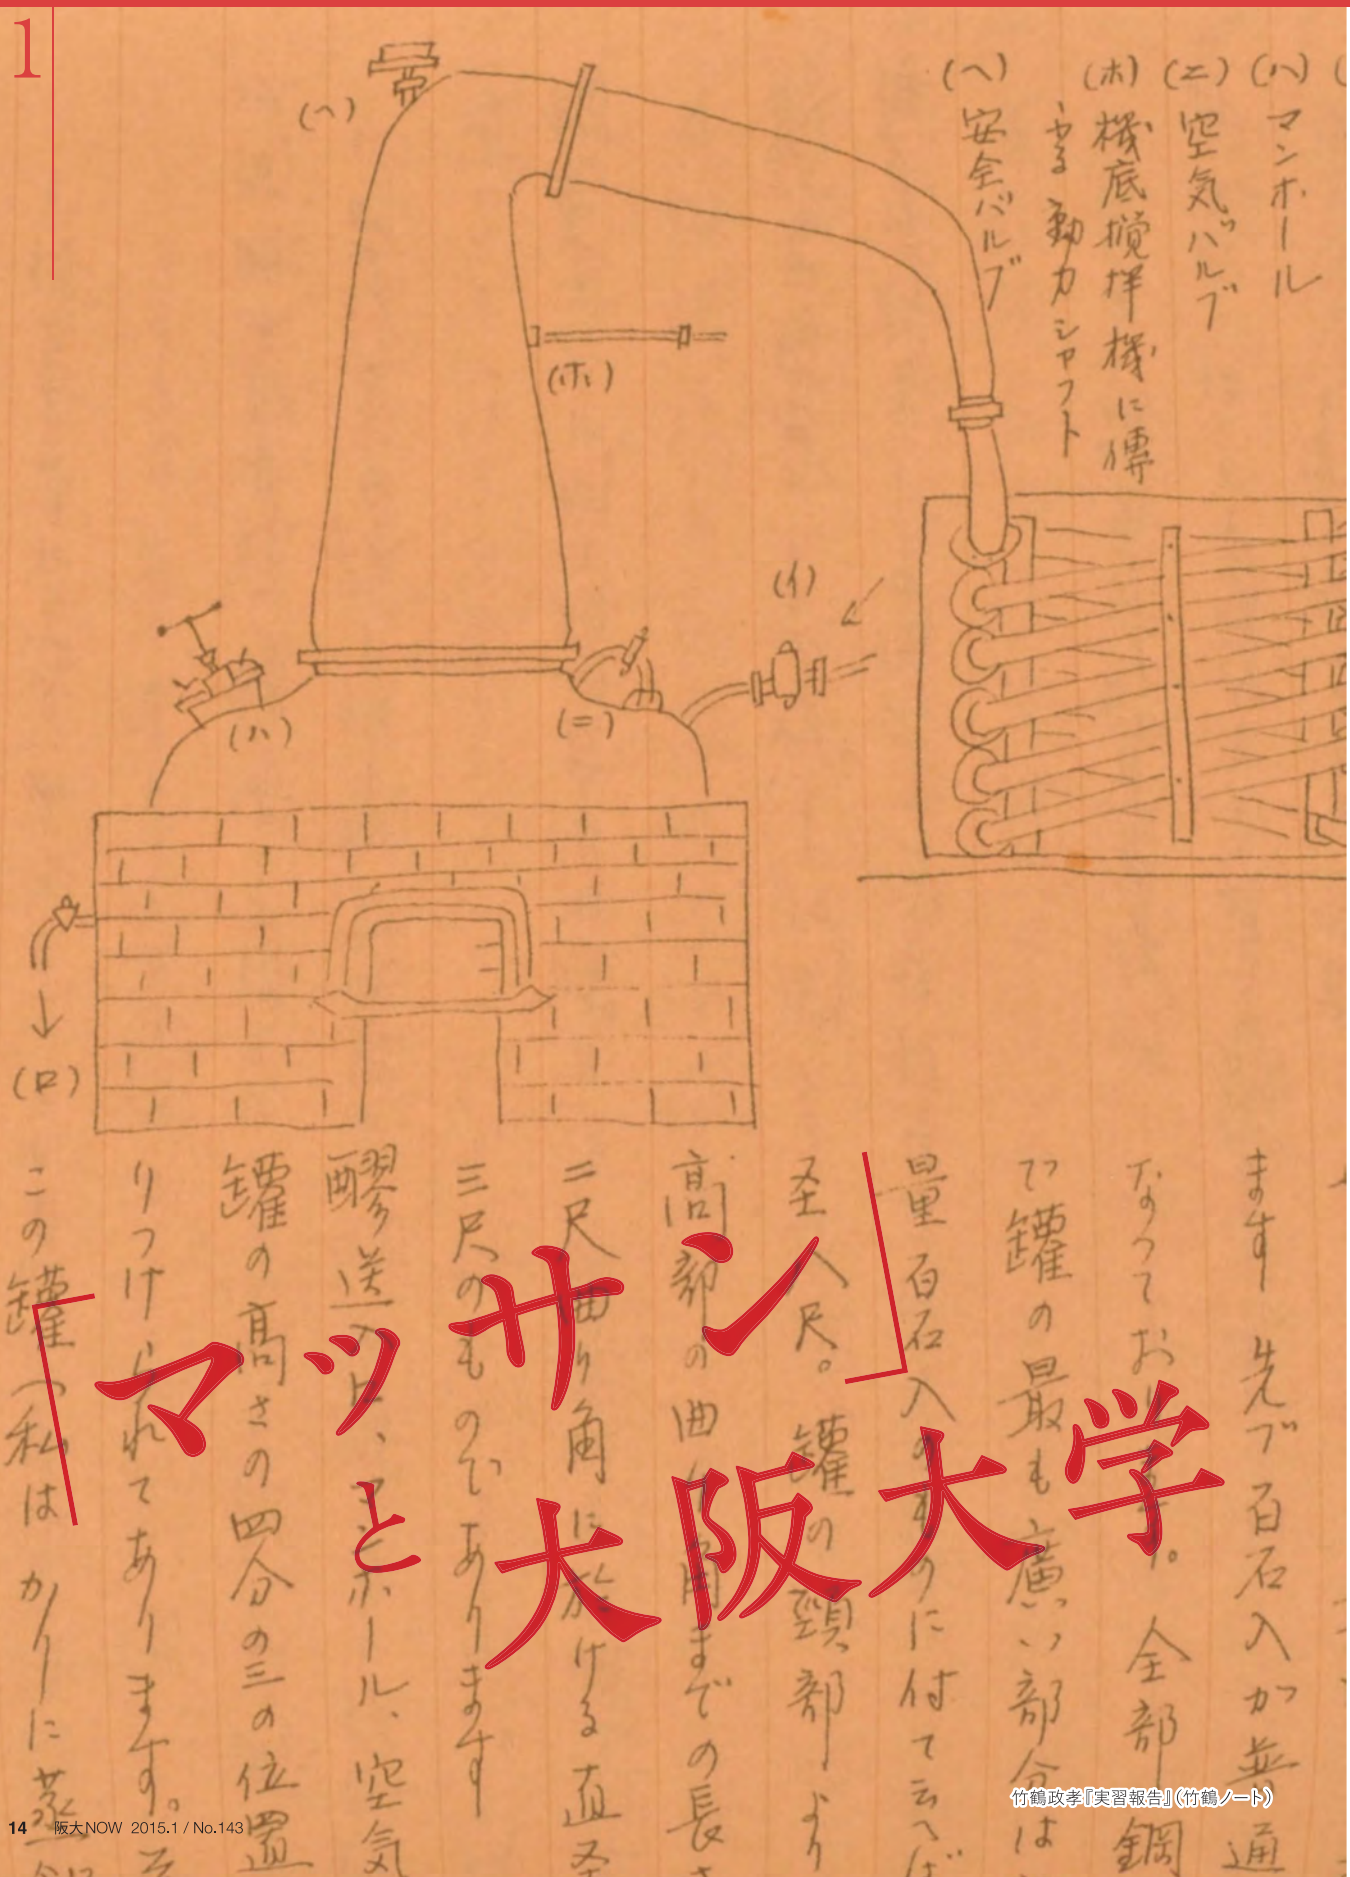 1
(ハ) マンホール
(ニ) 空気バルブ
(ホ) 機底攪拌機に傳
ふる動力シャフト
(ヘ) 安全バルブ
(ヘ)
(ホ)
(イ)
(ハ)
(ニ)
(ロ)
ます 先ブ百石入が普通
なつており 全部銅
で罐の最も廣い部分は
量百石入 に付て云へば
圣八尺。罐の頸部より
高部の曲り角までの長さ
二尺曲り角に於ける直圣
三尺のものでありま す
醪送入口、マンホール、空気
罐の高さの四分の三の位置
りつけられてあります。そ
この罐(私は かりに蒸
「マッサン」
と大阪大学
竹鶴政孝『実習報告』(竹鶴ノート)
14 阪大NOW 2015.1 / No.143